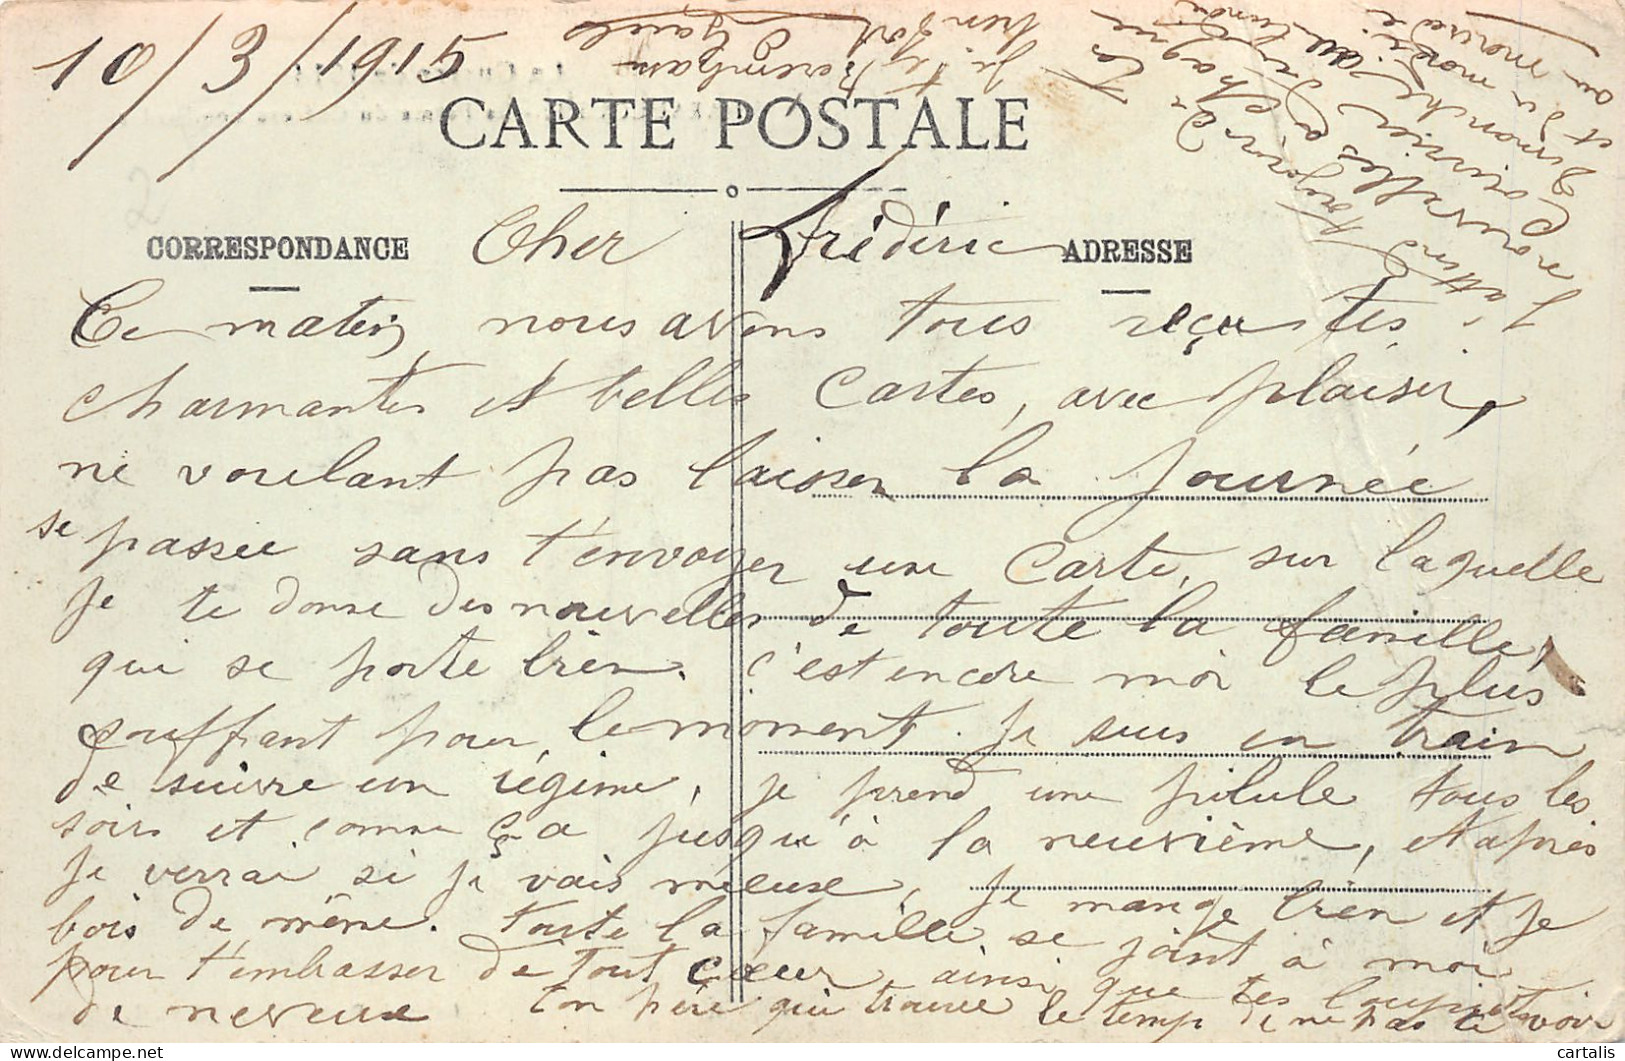 10/3/1915
CARTE POSTALE
CORRESPONDANCE
ADRESSE
Cher Frédéric
Ce matin nous avons tous reçu tes
charmantes et belles cartes, avec plaisir,
ne voulant pas laisser la journée
se passée sans t'envoyer une Carte, sur laquelle
je te donne des nouvelles de toute la famille,
qui se porte bien. C'est encore moi le plus
souffrant pour le moment. Je suis en train
de suivre un régime, je prend une pilule tous les
soirs et comme ça jusqu'à la neuvième, et après
je verrai si je vais mieux, je mange bien et je
bois de même. Toute la famille se joint à moi
pour t'embrasser de tout cœur, ainsi que tes
de neveux ton père qui trouve le temp de ne pas te voir
J'attend toujours de
nouvelles à chaque
Courrier
Dimanche au lundi
et du mardi
au
cartalis